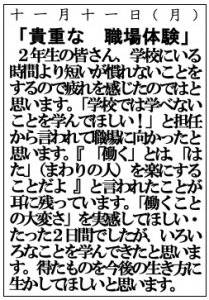 十一月十一日(月)
「貴重な　職場体験」
　２年生の皆さん、学校にいる
時間より短いが慣れないことを
するので疲れを感じたのではと
思います。「学校では学べない
ことを学んでほしい！」と担任
から言われて職場に向かったと
思います。『「働く」とは、「は
た」（まわりの人）を楽にする
ことだよ』と言われたことが
耳に残っています。「働くこと
の大変さ」を実感してほしい・
たった２日間でしたが、いろい
ろなことを学んできたと思いま
す。得たものを今後の生き方に
生かしてほしいと思います。